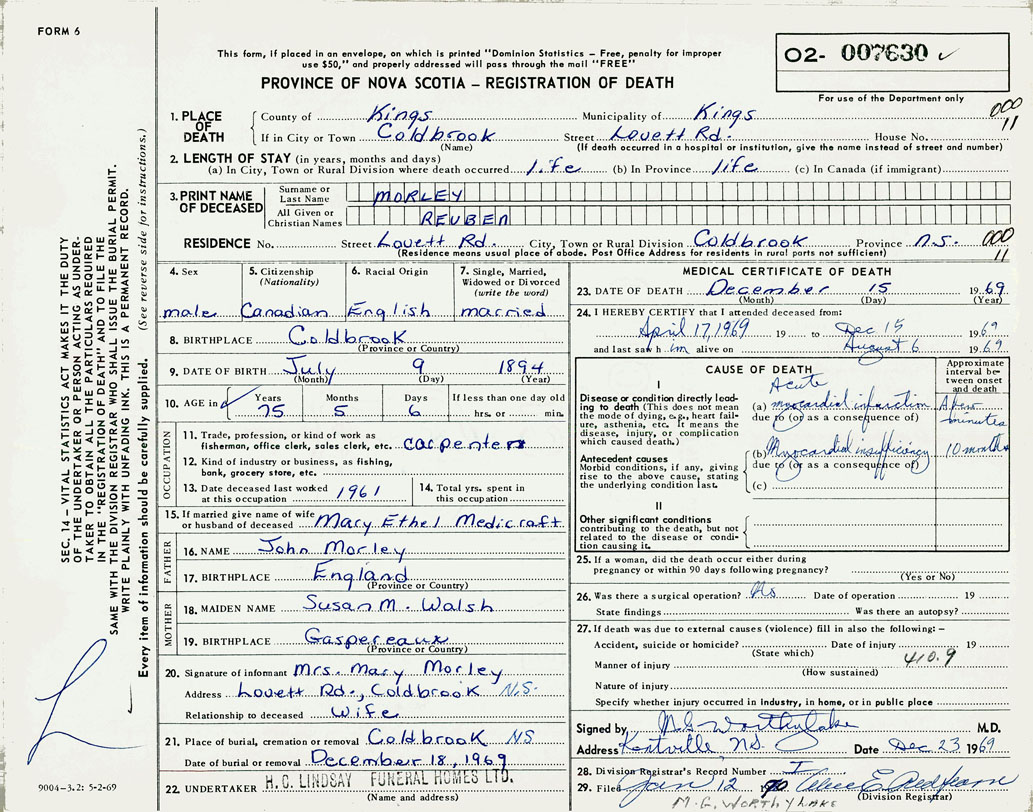 FORM 6
This form, if placed in an envelope, on which is printed "Dominion Statistics – Free, penalty for improper
use $50," and properly addressed will pass through the mail "FREE"
PROVINCE OF NOVA SCOTIA – REGISTRATION OF DEATH
02- 007630 ✓
For use of the Department only
000
11
1. PLACE OF DEATH
County of Kings Municipality of Kings
If in City or Town Coldbrook Street Lovett Rd. House No.
(Name) (If death occurred in a hospital or institution, give the name instead of street and number)
2. LENGTH OF STAY (in years, months and days)
(a) In City, Town or Rural Division where death occurred life (b) In Province life (c) In Canada (if immigrant)
3. PRINT NAME OF DECEASED
Surname or Last Name MORLEY
All Given or Christian Names REUBEN
RESIDENCE No. Street Lovett Rd. City, Town or Rural Division Coldbrook Province N.S. 000
(Residence means usual place of abode. Post Office Address for residents in rural parts not sufficient) 11
4. Sex
male
5. Citizenship
(Nationality)
Canadian
6. Racial Origin
English
7. Single, Married,
Widowed or Divorced
(write the word)
married
8. BIRTHPLACE Coldbrook
(Province or Country)
9. DATE OF BIRTH July 9 1894
(Month) (Day) (Year)
10. AGE in Years Months Days If less than one day old
75 5 6 hrs. or min.
OCCUPATION
11. Trade, profession, or kind of work as
fisherman, office clerk, sales clerk, etc. carpenter
12. Kind of industry or business, as fishing,
bank, grocery store, etc.
13. Date deceased last worked
at this occupation 1961
14. Total yrs. spent in
this occupation
15. If married give name of wife
or husband of deceased Mary Ethel Medicraft
FATHER
16. NAME John Morley
17. BIRTHPLACE England
(Province or Country)
MOTHER
18. MAIDEN NAME Susan M. Walsh
19. BIRTHPLACE Gaspereaux
(Province or Country)
20. Signature of informant Mrs. Mary Morley
Address Lovett Rd., Coldbrook N.S.
Relationship to deceased Wife
21. Place of burial, cremation or removal Coldbrook NS
Date of burial or removal December 18, 1969
22. UNDERTAKER H. C. LINDSAY FUNERAL HOMES LTD.
(Name and address)
MEDICAL CERTIFICATE OF DEATH
23. DATE OF DEATH December 15 1969
(Month) (Day) (Year)
24. I HEREBY CERTIFY that I attended deceased from:
April 17, 1969 19 to Dec 15 1969
and last saw him alive on August 6 1969
CAUSE OF DEATH
Approximate
interval be-
tween onset
and death
I
Disease or condition directly lead-
ing to death (This does not mean
the mode of dying, e.g., heart fail-
ure, asthenia, etc. It means the
disease, injury, or complication
which caused death.)
Acute
(a) myocardial infarction A few
minutes
due to (or as a consequence of)
Antecedent causes
Morbid conditions, if any, giving
rise to the above cause, stating
the underlying condition last.
(b) Myocardial insufficiency 10 months
due to (or as a consequence of)
(c)
II
Other significant conditions
contributing to the death, but not
related to the disease or condi-
tion causing it.
25. If a woman, did the death occur either during
pregnancy or within 90 days following pregnancy?
(Yes or No)
26. Was there a surgical operation? No Date of operation 19
State findings Was there an autopsy?
27. If death was due to external causes (violence) fill in also the following: –
Accident, suicide or homicide? Date of injury 19
(State which)
410.9
Manner of injury
(How sustained)
Nature of injury
Specify whether injury occurred in industry, in home, or in public place
Signed by M.G. Worthylake M.D.
Address Kentville N.S. Date Dec 23 1969
28. Division Registrar's Record Number I
29. Filed Jan 12 1970
(Division Registrar)
M. G. WORTHYLAKE
SEC. 14 – VITAL STATISTICS ACT MAKES IT THE DUTY
OF THE UNDERTAKER OR PERSON ACTING AS UNDER-
TAKER TO OBTAIN ALL THE PARTICULARS REQUIRED
IN THE "REGISTRATION OF DEATH" AND TO FILE THE
SAME WITH THE DIVISION REGISTRAR WHO SHALL ISSUE THE BURIAL PERMIT.
WRITE PLAINLY WITH UNFADING INK. THIS IS A PERMANENT RECORD.
Every item of information should be carefully supplied. (See reverse side for instructions.)
9004-3.2: 5-2-69